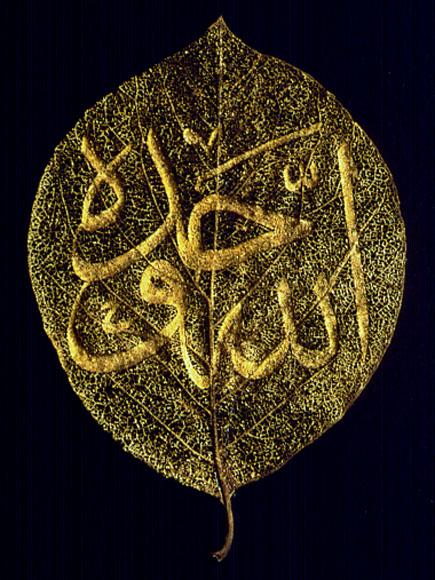 الله وحده